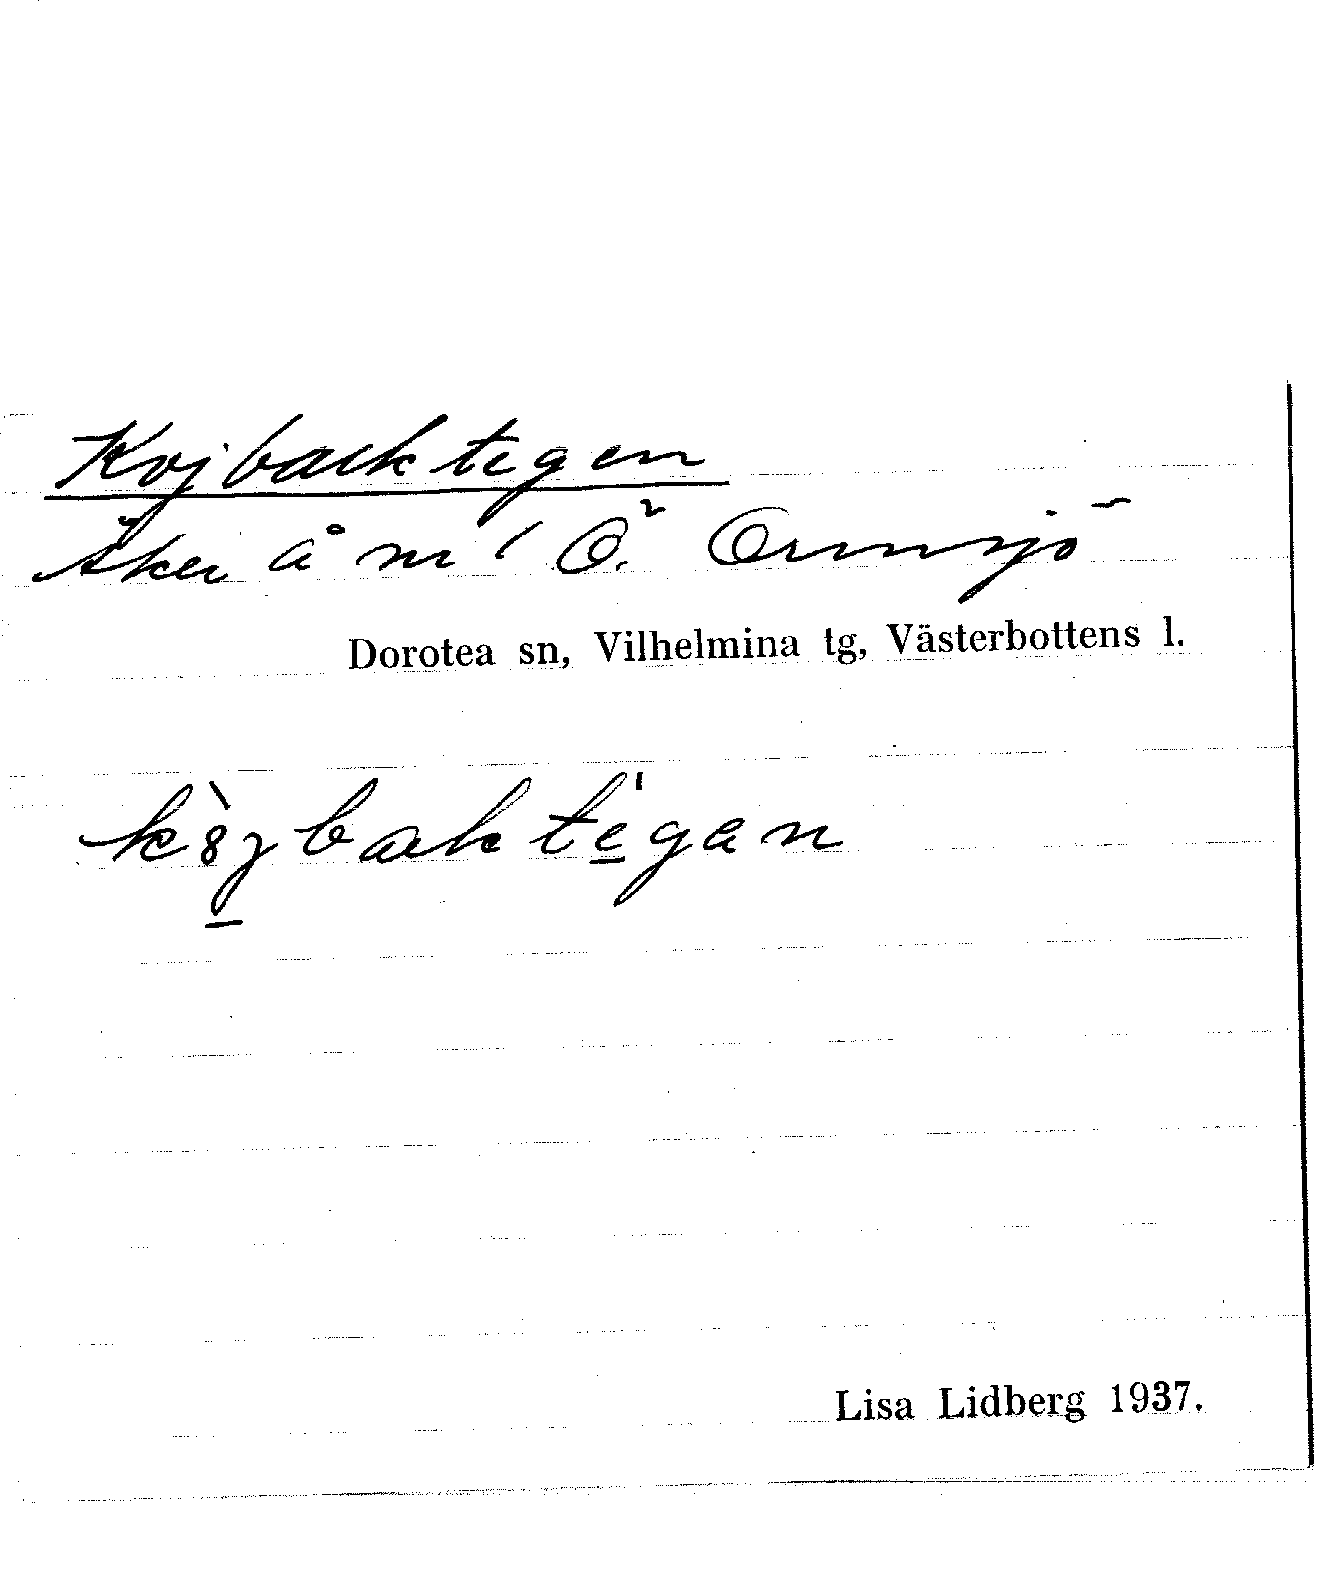 Kojbacktegen
Åker å nr 1 Ö. Ormsjö
Dorotea sn, Vilhelmina tg, Västerbottens l.
kòjbaktegan
Lisa Lidberg 1937.